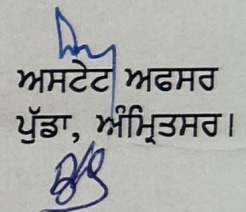 ਅਸਟੇਟ ਅਫਸਰ
ਪੁੱਡਾ, ਅੰਮ੍ਰਿਤਸਰ।